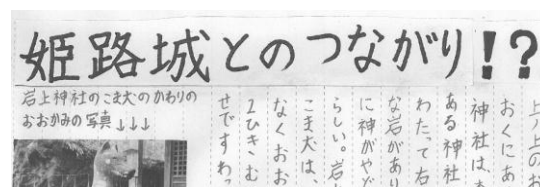 姫路城とのつながり!?
岩上神社のこま犬のかわりの
おおかみの写真↓↓↓
おくにあ
神社は、
ある神社
わたって右
な岩があり
に神がやど
らしい。岩
こま犬は、
なくおお
2ひきむ
せですわっ